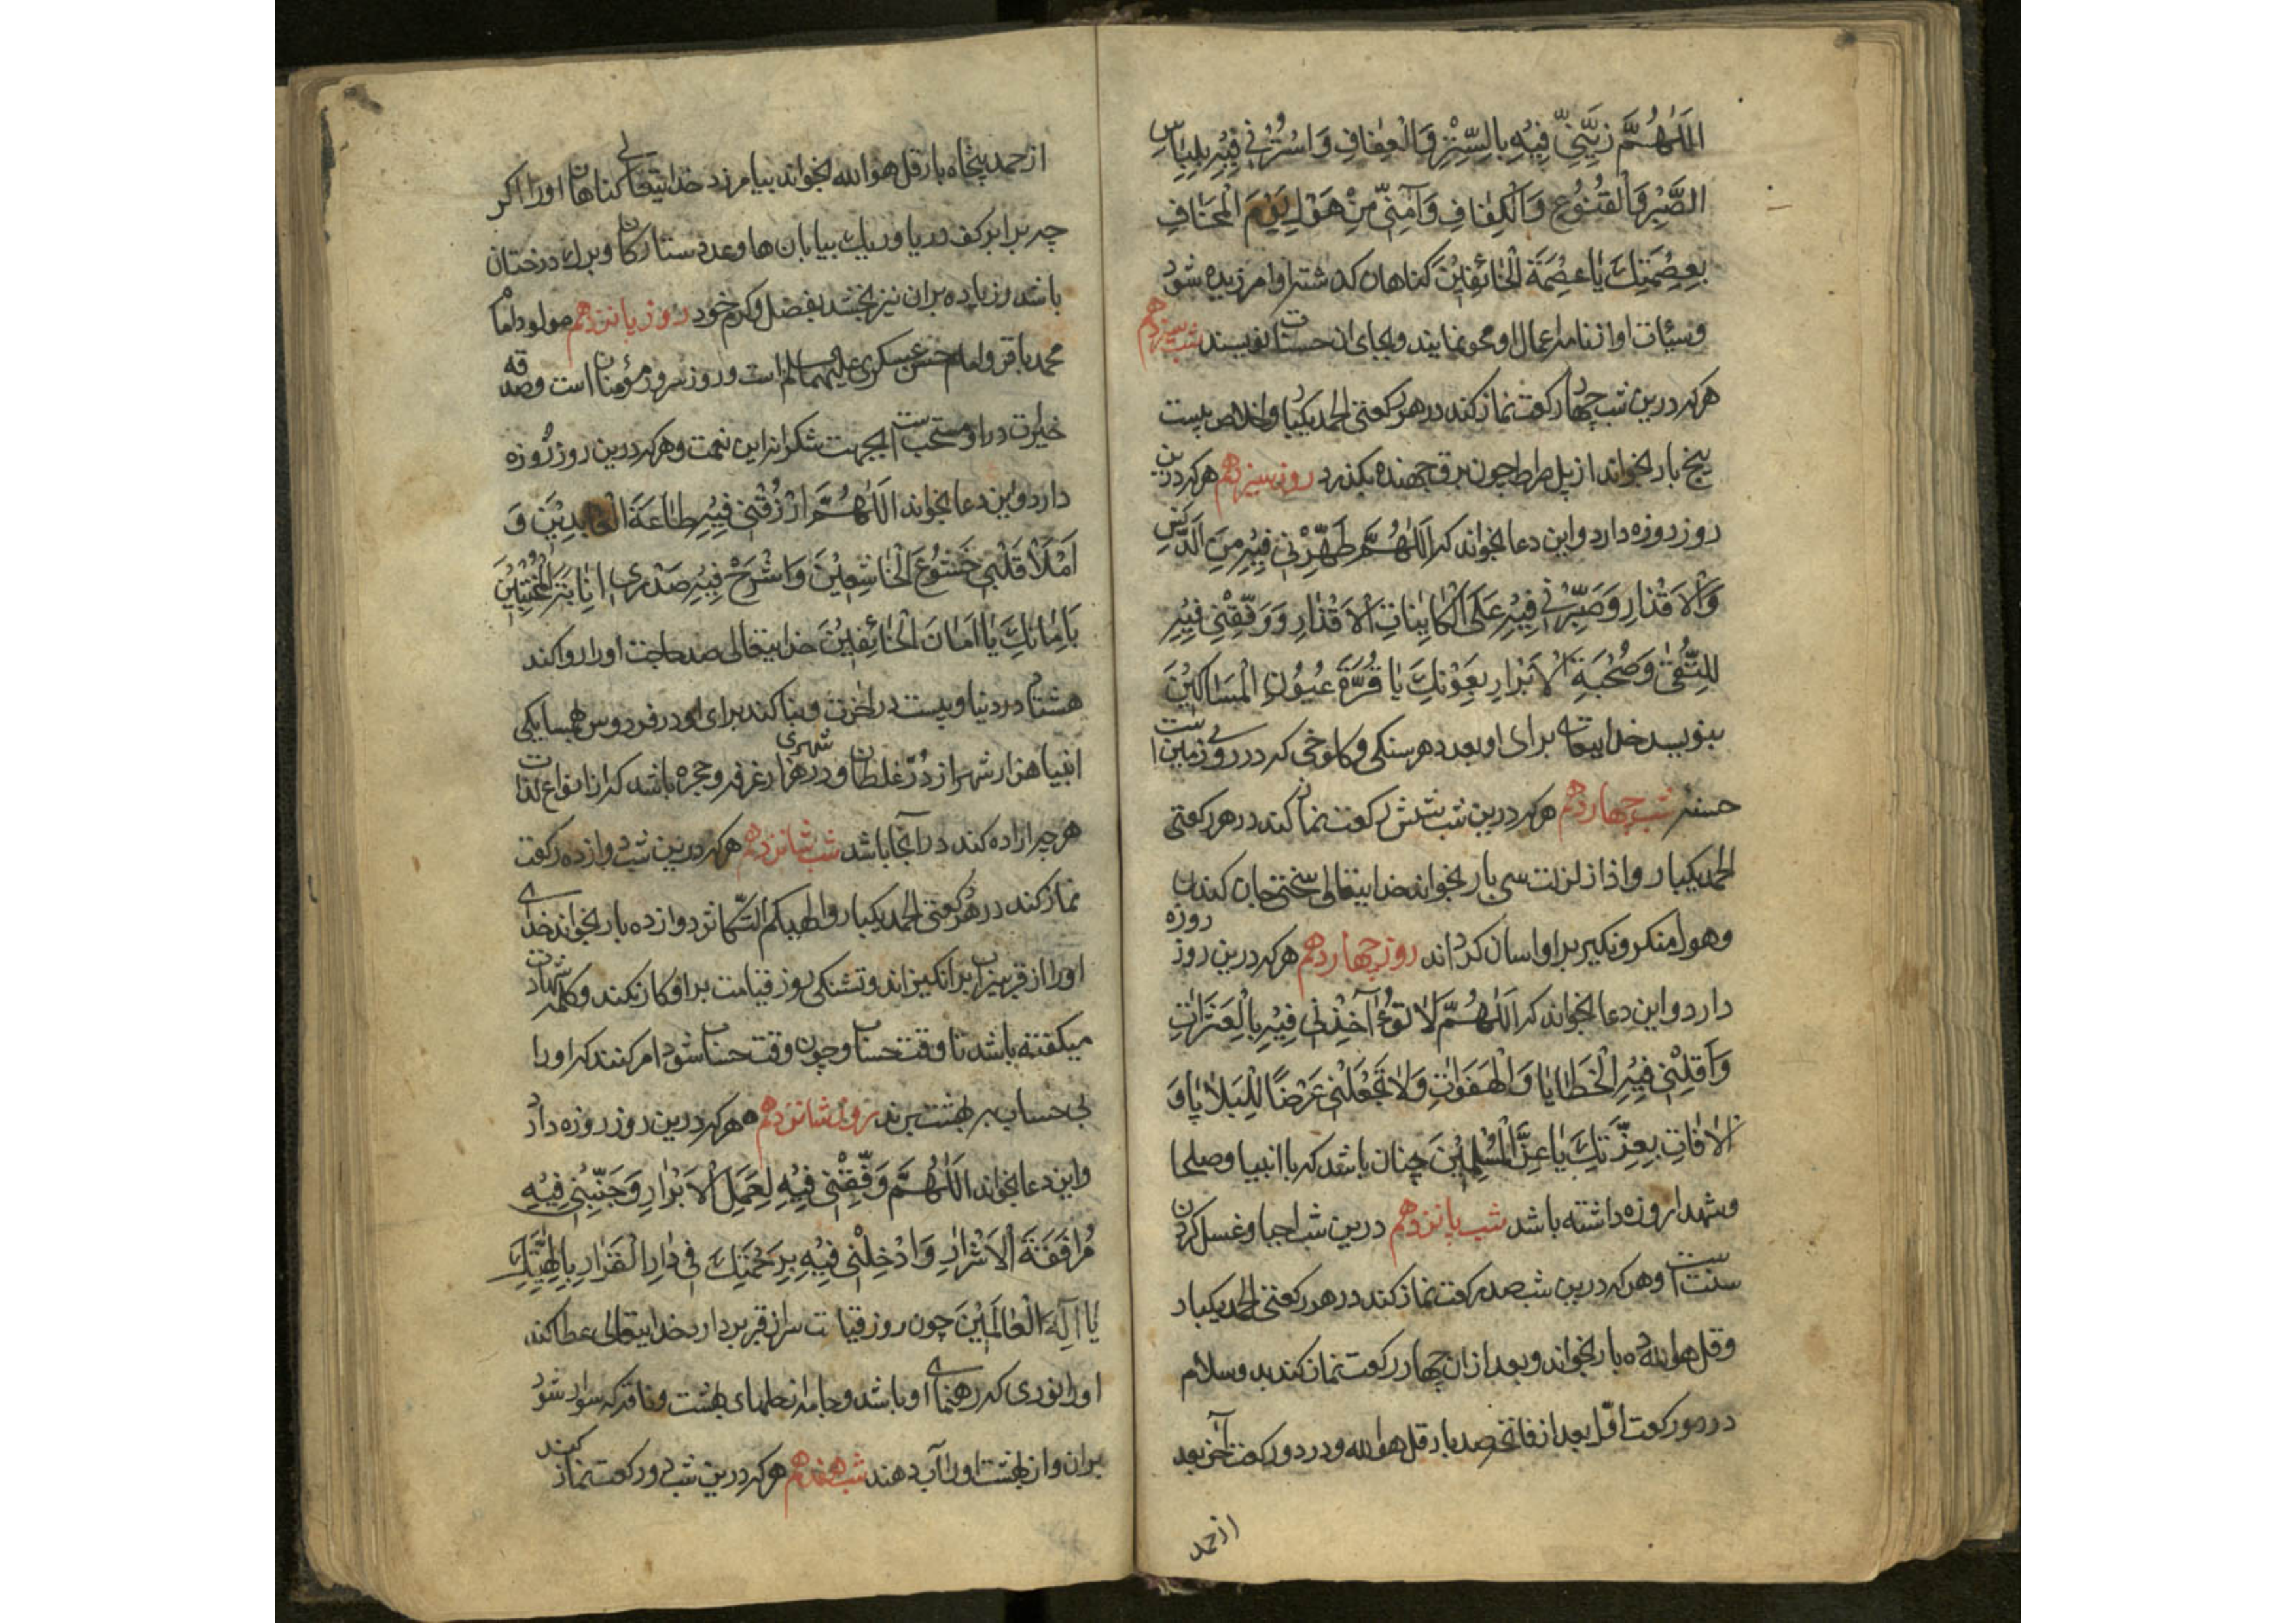 اَللّٰهُمَّ زَيِّنِّي فِيْهِ بِالسِّتْرِ وَالْعِفَافِ وَاسْتُرْنِي فِيْهِ بِلِبَاسِ
الصَّبْرِ وَالْقُنُوْعِ وَالْكِفَافِ وَآمِنِّي مِنْ هَوْلِ يَوْمَ الْمَخَافِ
بِعِصْمَتِكَ يَا عِصْمَةَ الْخَائِفِيْنَ كناهان كذشته او امرزيده شود
وسيئات او از نامه اعمال او محو نمايند وبجاى ان حسنات نويسند شب سيزدهم
هركه درين شب چهار ركعت نماز كند در هر ركعتى الحمد يكبار واخلاص بيست
پنج بار بخواند از پل صراط چون برق جهنده بكذرد روز سيزدهم هركه درين
روز روزه دارد واين دعا بخواند كه اَللّٰهُمَّ طَهِّرْنِي فِيْهِ مِنَ الدَّنَسِ
وَالْاَقْذَارِ وَصَبِّرْنِي فِيْهِ عَلَى الْكَايِنَاتِ الْاَقْدَارِ وَوَفِّقْنِي فِيْهِ
لِلتُّقٰى وَصُحْبَةِ الْاَبْرَارِ بِعَوْنِكَ يَا قُرَّةَ عُيُوْنِ الْمَسَاكِيْنَ
بنويسد خدايتعالى براى او بعدد هر سنكى وكلوخى كه در روى زمين است
حسنه شب چهاردهم هركه درين شب شش ركعت نماز كند در هر ركعتى
الحمد يكبار واذا زلزلت سى بار بخواند خدايتعالى سختى جان كندن
وهول منكر ونكير بر او اسان كرداند روز چهاردهم هركه درين روز روزه
دارد واين دعا بخواند كه اَللّٰهُمَّ لَا تُؤَآخِذْنِي فِيْهِ بِالْعَثَرَاتِ
وَاَقِلْنِي فِيْهِ الْخَطَايَا وَالْهَفَوَاتِ وَلَا تَجْعَلْنِي غَرَضًا لِلْبَلَايَا وَ
الْاٰفَاتِ بِعِزَّتِكَ يَا عِزَّ الْمُسْلِمِيْنَ چنان باشد كه با انبيا وصلحا
وشهدا روزه داشته باشد شب پانزدهم درين شب احيا وغسل كردن
سنت است وهركه درين شب صد ركعت نماز كند در هر ركعتى الحمد يكبار
وقل هو الله ده بار بخواند وبعد ازان چهار ركعت نماز كند بدو سلام
در دو ركعت اوّل بعد از فاتحه صد بار قل هو الله ودر دو ركعت آخر بعد
از حمد
از حمد پنجاه بار قل هو الله بخواند بيامرزد خدايتعالى كناهان او را اكر
چه برابر كف دريا وريك بيابان ها وعدد ستاركان وبرك درختان
باشد وزياده بران نيز بخشد بفضل وكرم خود روز پانزدهم مولود امام
محمد باقر وامام حسن عسكرى عليهما السلام است وروز سرور مؤمنان است وصدقه
خيرات در او مستحب است بجهت شكرانه اين نعمت وهركه درين روز رُوزه
دارد واين دعا بخواند اَللّٰهُمَّ ارْزُقْنِي فِيْهِ طَاعَةَ الْعَابِدِيْنَ وَ
اَمْلَأْ قَلْبِي خُشُوْعَ الْخَاشِعِيْنَ وَاشْرَحْ فِيْهِ صَدْرِي اِنَابَةَ الْمُخْبِتِيْنَ
بِاَمَانِكَ يَا اَمَانَ الْخَائِفِيْنَ خدايتعالى صد حاجت او را روا كند
هشتاد در دنيا وبيست در اخرت وبنا كند براى او در فردوس همسايكى
انبيا هزار شهر از دُرّ غلطان ودر هر شهرى هزار غرفه وحجره باشد كه از انواع لذات
هرچه اراده كند در آنجا باشد شب شانزدهم هركه درين شب دوازده ركعت
نماز كند در هر ركعتى الحمد يكبار والهيكم التّكاثر دوازده بار بخواند خداى
او را از قبر سيراب برانكيزاند وتشنكى روز قيامت بر او كار نكند وكلمه شهادت
ميكفته باشد تا وقت حساب وچون وقت حساب شود امر كنند كه او را
بى حساب به بهشت برند روز شانزدهم هركه درين روز روزه دارد
واين دعا بخواند اَللّٰهُمَّ وَفِّقْنِي فِيْهِ لِعَمَلِ الْاَبْرَارِ وَجَنِّبْنِي فِيْهِ
مُرَافَقَةَ الْاَشْرَارِ وَادْخِلْنِي فِيْهِ بِرَحْمَتِكَ فِي دَارِ الْقَرَارِ بِاِلٰهِيَّتِكَ
يَا اِلٰهَ الْعَالَمِيْنَ چون روز قيامت سر از قبر بردارد خدايتعالى عطا كند
او را نورى كه رهنماى او باشد وجامه از حلهاى بهشت وناقه كه سوار شود
بران واز بهشت او را آب دهند شب هفدهم هركه درين شب دو ركعت نماز كند